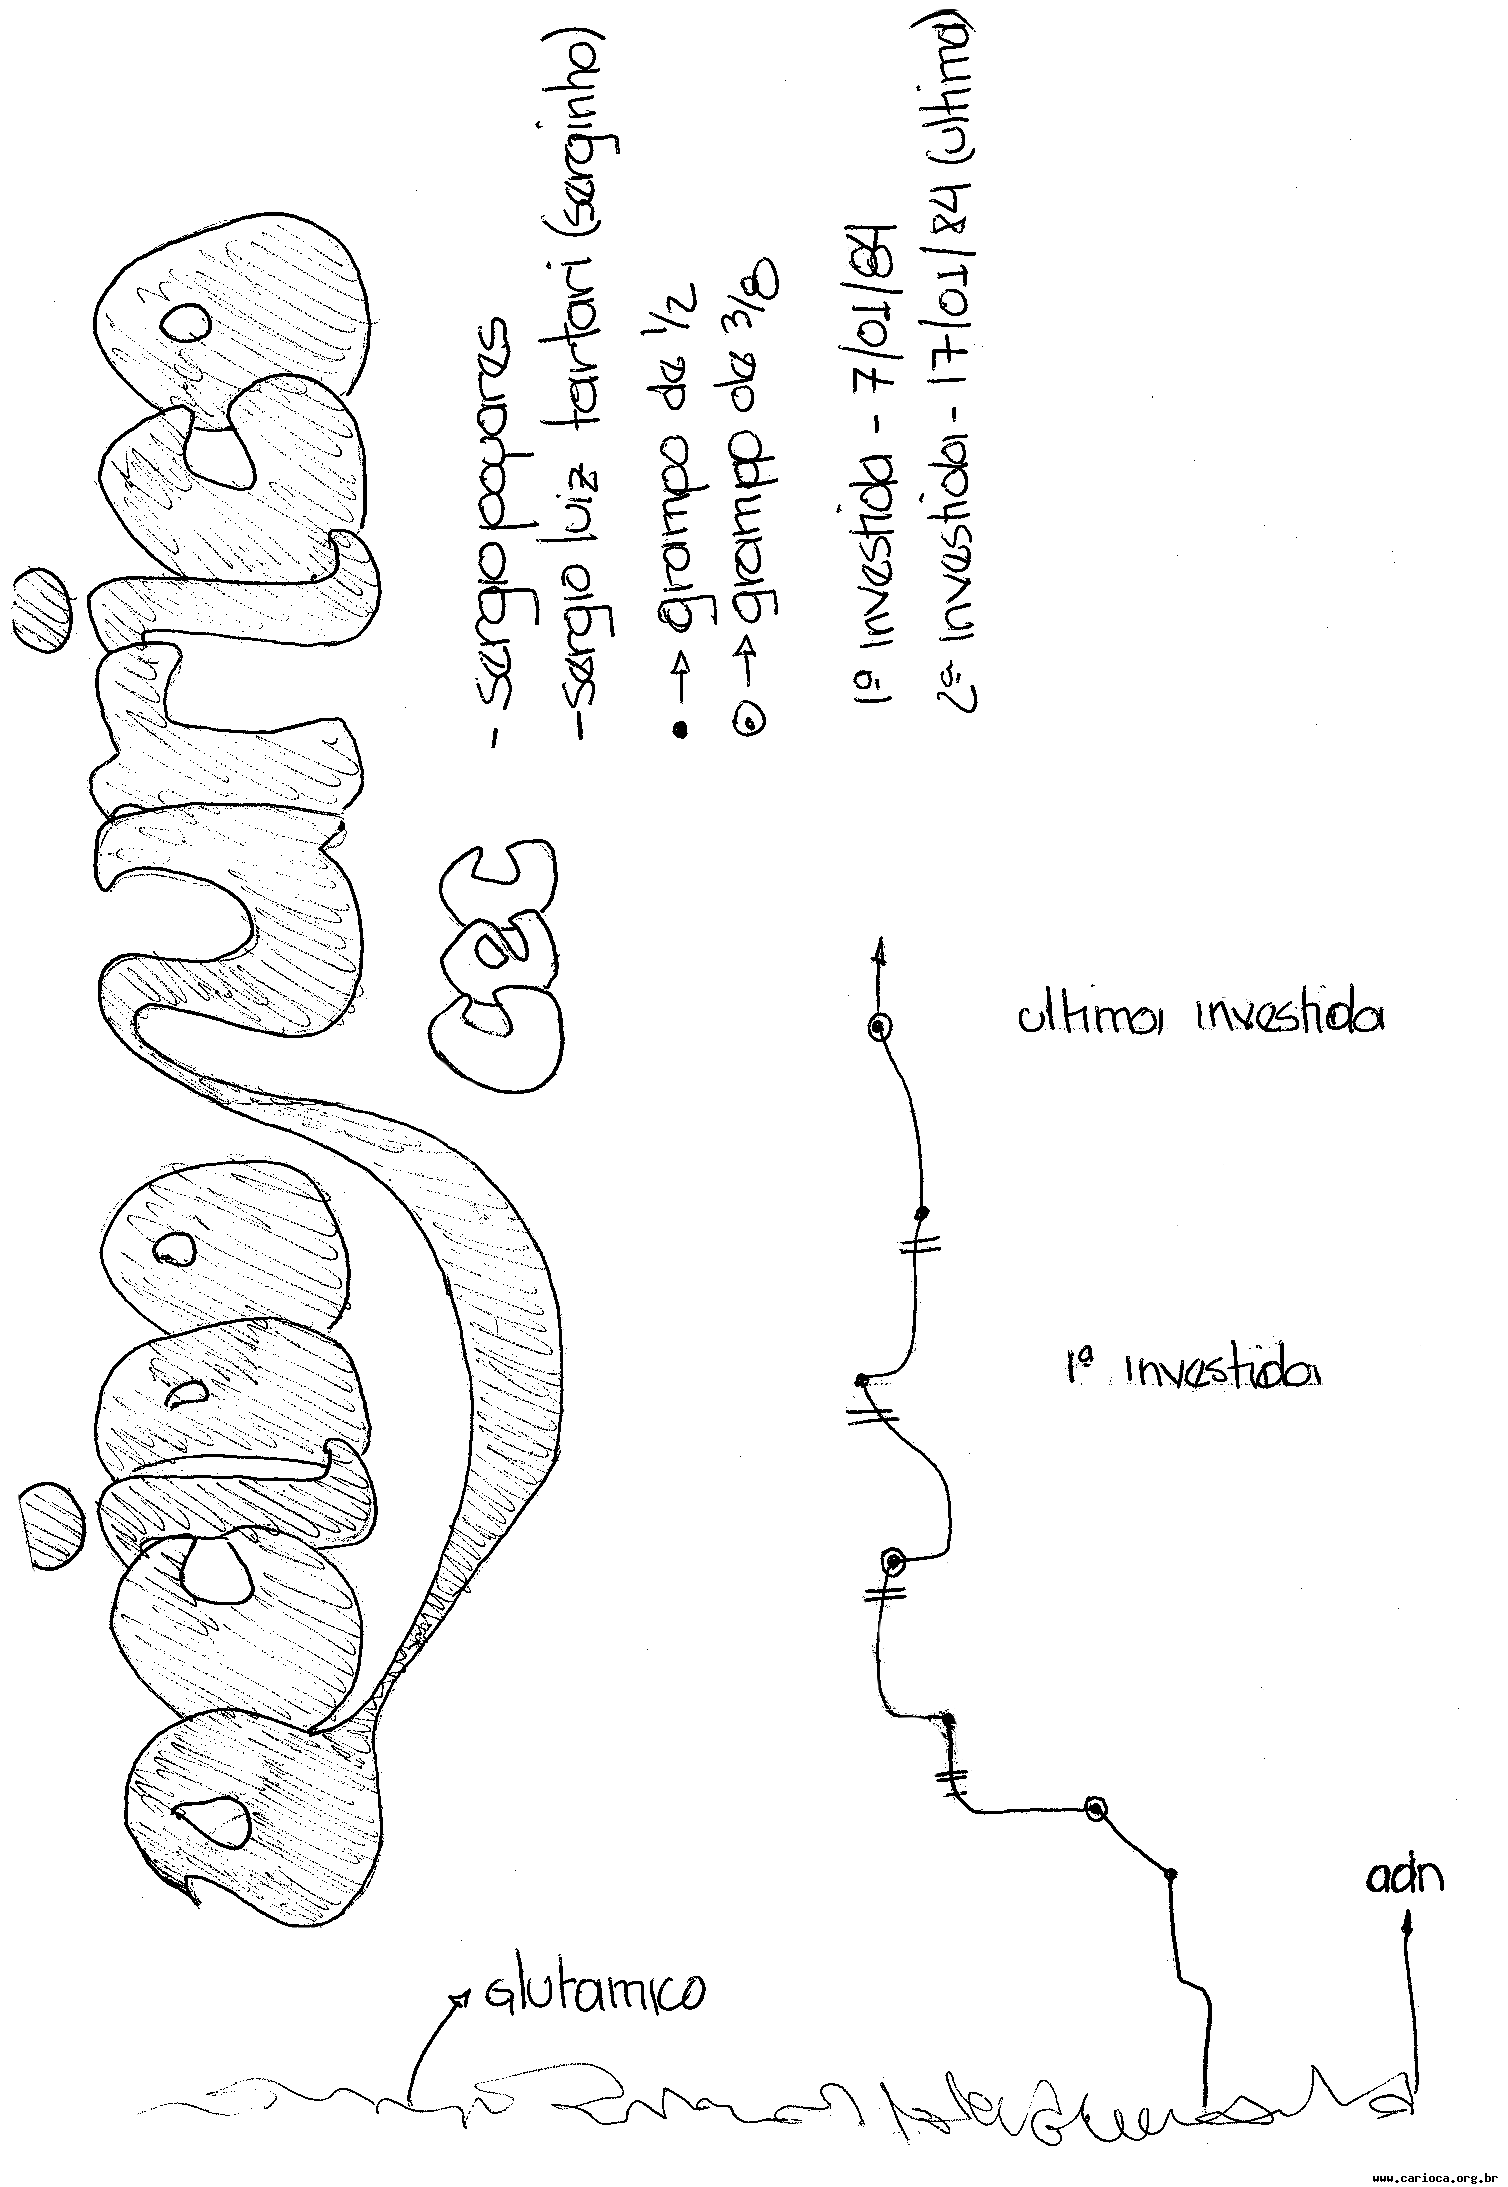 acido urico
cec
- sergio poyares
- sergio luiz tartari (serginho)
• → grampo de 1/2
⊙ → grampo de 3/8
1ª investida - 7/01/84
2ª investida - 17/01/84 (ultima)
ultima investida
1ª investida
adn
glutamico
www.carioca.org.br